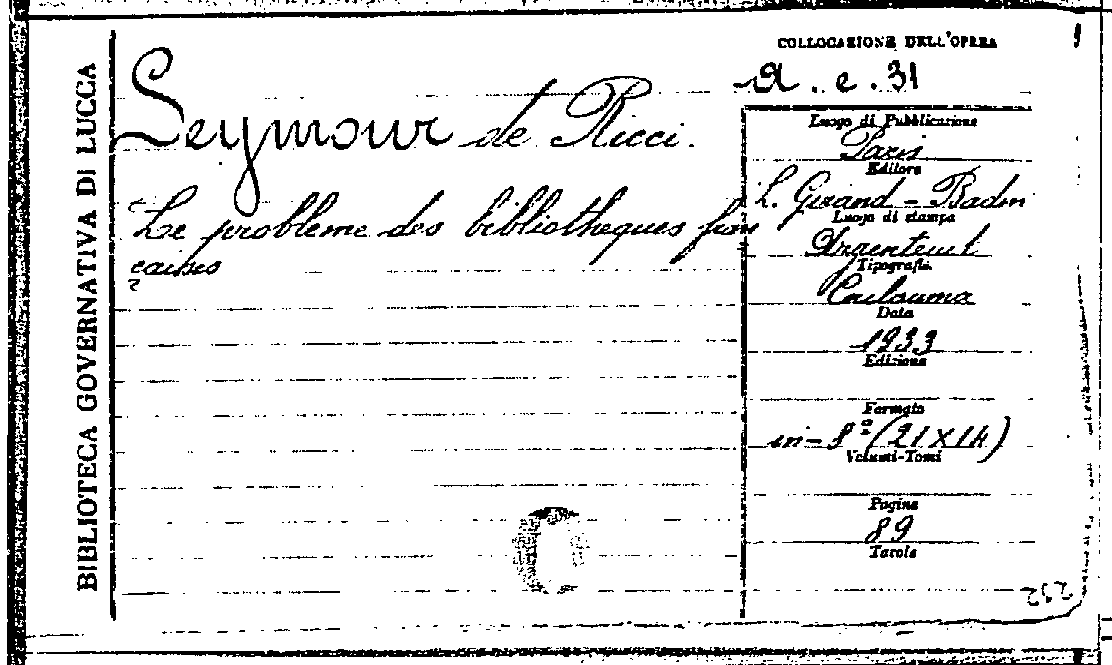 BIBLIOTECA GOVERNATIVA DI LUCCA
COLLOCAZIONE DELL'OPERA
A. e. 31
Seymour de Ricci.
Le probleme des bibliotheques fran
çaises
Luogo di Pubblicazione
Paris
Editore
L. Girand-Badin
Luogo di stampa
Argenteuil
Tipografia
Coulouma
Data
1933
Edizione
Formato
in-8º (21X14)
Volumi-Tomi
Pagine
89
Tavole
C
232